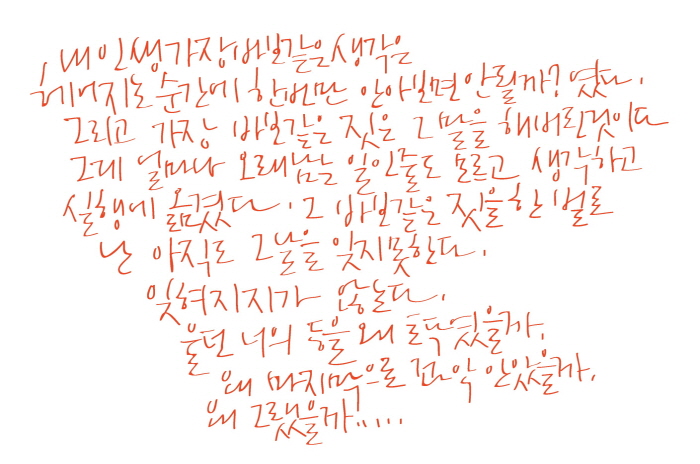 내 인생 가장 바보같은 생각은
헤어지는 순간에 한번만 안아보면 안될까? 였다.
그리고 가장 바보같은 짓은 그 말을 해버린것이다
그게 얼마나 오래남는 일인줄도 모르고 생각하고
실행에 옮겼다. 그 바보같은 짓을 한 벌로
난 아직도 그날을 잊지못한다.
잊혀지지가 않는다.
울던 너의 등을 왜 토닥였을까.
왜 마지막으로 꼬악 안았을까.
왜 그랬을까.....